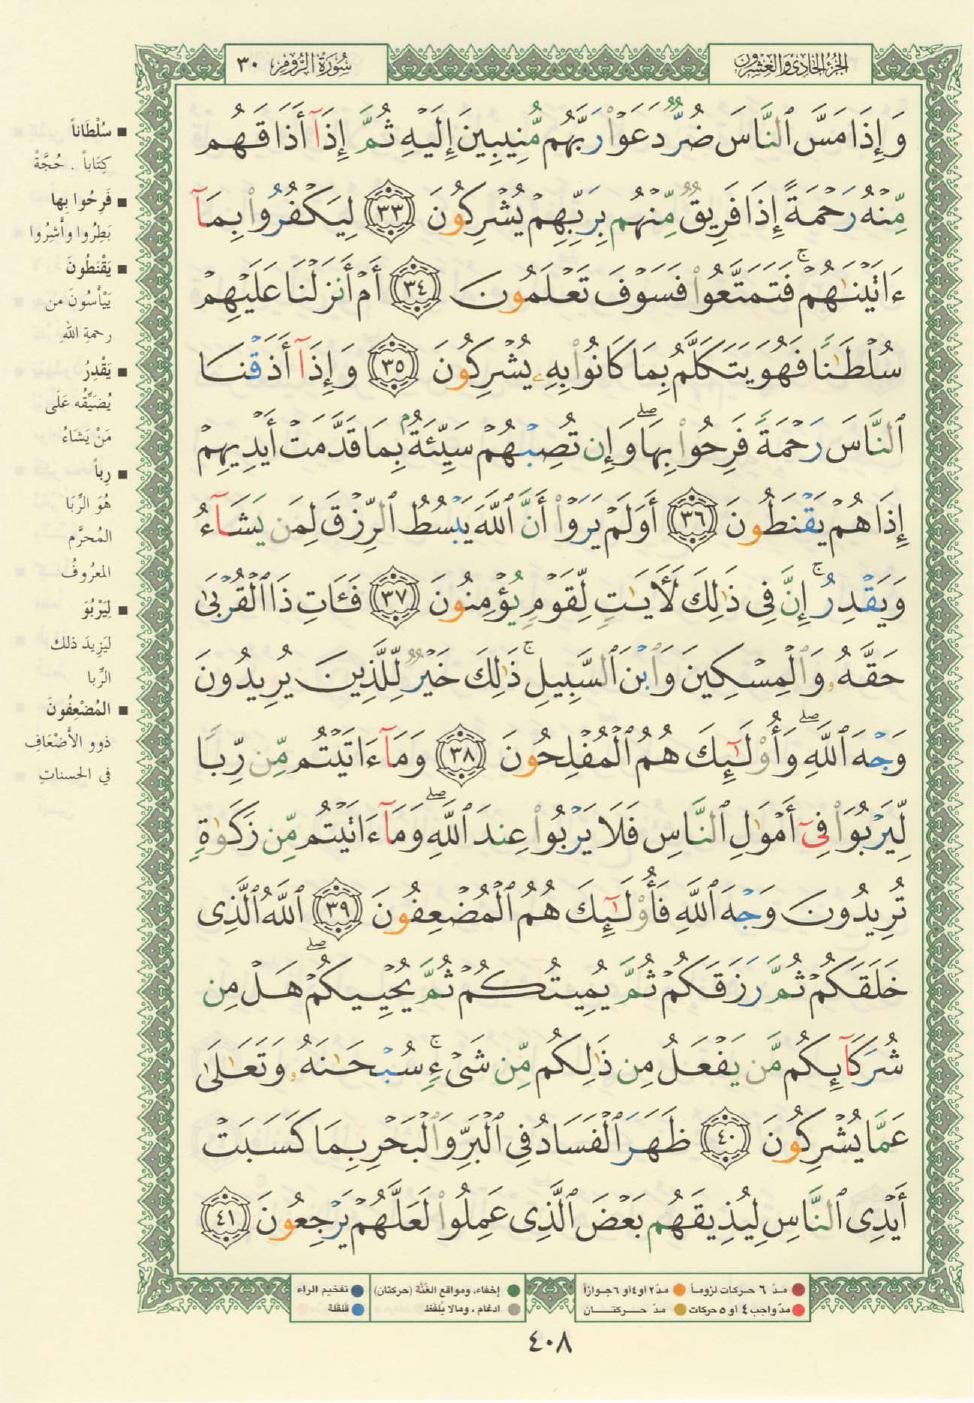 الجزء الحادي والعشرون
سورة الروم ٣٠
وَإِذَا مَسَّ ٱلنَّاسَ ضُرٌّ دَعَوْا۟ رَبَّهُم مُّنِيبِينَ إِلَيْهِ ثُمَّ إِذَآ أَذَاقَهُم
مِّنْهُ رَحْمَةً إِذَا فَرِيقٌ مِّنْهُم بِرَبِّهِمْ يُشْرِكُونَ ٣٣ لِيَكْفُرُوا۟ بِمَآ
ءَاتَيْنَـٰهُمْ ۚ فَتَمَتَّعُوا۟ فَسَوْفَ تَعْلَمُونَ ٣٤ أَمْ أَنزَلْنَا عَلَيْهِمْ
سُلْطَـٰنًا فَهُوَ يَتَكَلَّمُ بِمَا كَانُوا۟ بِهِۦ يُشْرِكُونَ ٣٥ وَإِذَآ أَذَقْنَا
ٱلنَّاسَ رَحْمَةً فَرِحُوا۟ بِهَا ۖ وَإِن تُصِبْهُمْ سَيِّئَةٌۢ بِمَا قَدَّمَتْ أَيْدِيهِمْ
إِذَا هُمْ يَقْنَطُونَ ٣٦ أَوَلَمْ يَرَوْا۟ أَنَّ ٱللَّهَ يَبْسُطُ ٱلرِّزْقَ لِمَن يَشَآءُ
وَيَقْدِرُ ۚ إِنَّ فِى ذَٰلِكَ لَـَٔايَـٰتٍ لِّقَوْمٍ يُؤْمِنُونَ ٣٧ فَـَٔاتِ ذَا ٱلْقُرْبَىٰ
حَقَّهُۥ وَٱلْمِسْكِينَ وَٱبْنَ ٱلسَّبِيلِ ۚ ذَٰلِكَ خَيْرٌ لِّلَّذِينَ يُرِيدُونَ
وَجْهَ ٱللَّهِ ۖ وَأُو۟لَـٰٓئِكَ هُمُ ٱلْمُفْلِحُونَ ٣٨ وَمَآ ءَاتَيْتُم مِّن رِّبًا
لِّيَرْبُوَا۟ فِىٓ أَمْوَٰلِ ٱلنَّاسِ فَلَا يَرْبُوا۟ عِندَ ٱللَّهِ ۖ وَمَآ ءَاتَيْتُم مِّن زَكَوٰةٍ
تُرِيدُونَ وَجْهَ ٱللَّهِ فَأُو۟لَـٰٓئِكَ هُمُ ٱلْمُضْعِفُونَ ٣٩ ٱللَّهُ ٱلَّذِى
خَلَقَكُمْ ثُمَّ رَزَقَكُمْ ثُمَّ يُمِيتُكُمْ ثُمَّ يُحْيِيكُمْ ۖ هَلْ مِن
شُرَكَآئِكُم مَّن يَفْعَلُ مِن ذَٰلِكُم مِّن شَىْءٍ ۚ سُبْحَـٰنَهُۥ وَتَعَـٰلَىٰ
عَمَّا يُشْرِكُونَ ٤٠ ظَهَرَ ٱلْفَسَادُ فِى ٱلْبَرِّ وَٱلْبَحْرِ بِمَا كَسَبَتْ
أَيْدِى ٱلنَّاسِ لِيُذِيقَهُم بَعْضَ ٱلَّذِى عَمِلُوا۟ لَعَلَّهُمْ يَرْجِعُونَ ٤١
■ سُلْطَاناً
كِتَاباً . حُجَّةً
■ فَرِحُوا بها
بَطِرُوا وأَشِرُوا
■ يَقْنَطُونَ
يَيْأَسُونَ من
رحمةِ اللهِ
■ يَقْدِرُ
يُضَيِّقُه عَلَى
مَنْ يَشَاءُ
■ رِباً
هُوَ الرِّبَا
المُحرَّم
المعرُوفُ
■ لِيَرْبُوَ
ليَزِيدَ ذلك
الرِّبا
■ المُضْعِفُونَ
ذوو الأَضْعَافِ
في الحسناتِ
مدّ ٦ حركات لزوماً مدّ ٢ أو ٤ أو ٦ جوازاً
مدّ واجب ٤ أو ٥ حركات مدّ حركتان
إخفاء، ومواقع الغُنَّة (حركتان)
ادغام، ومالا يُلفَظ
تفخيم الراء
قلقلة
٤٠٨